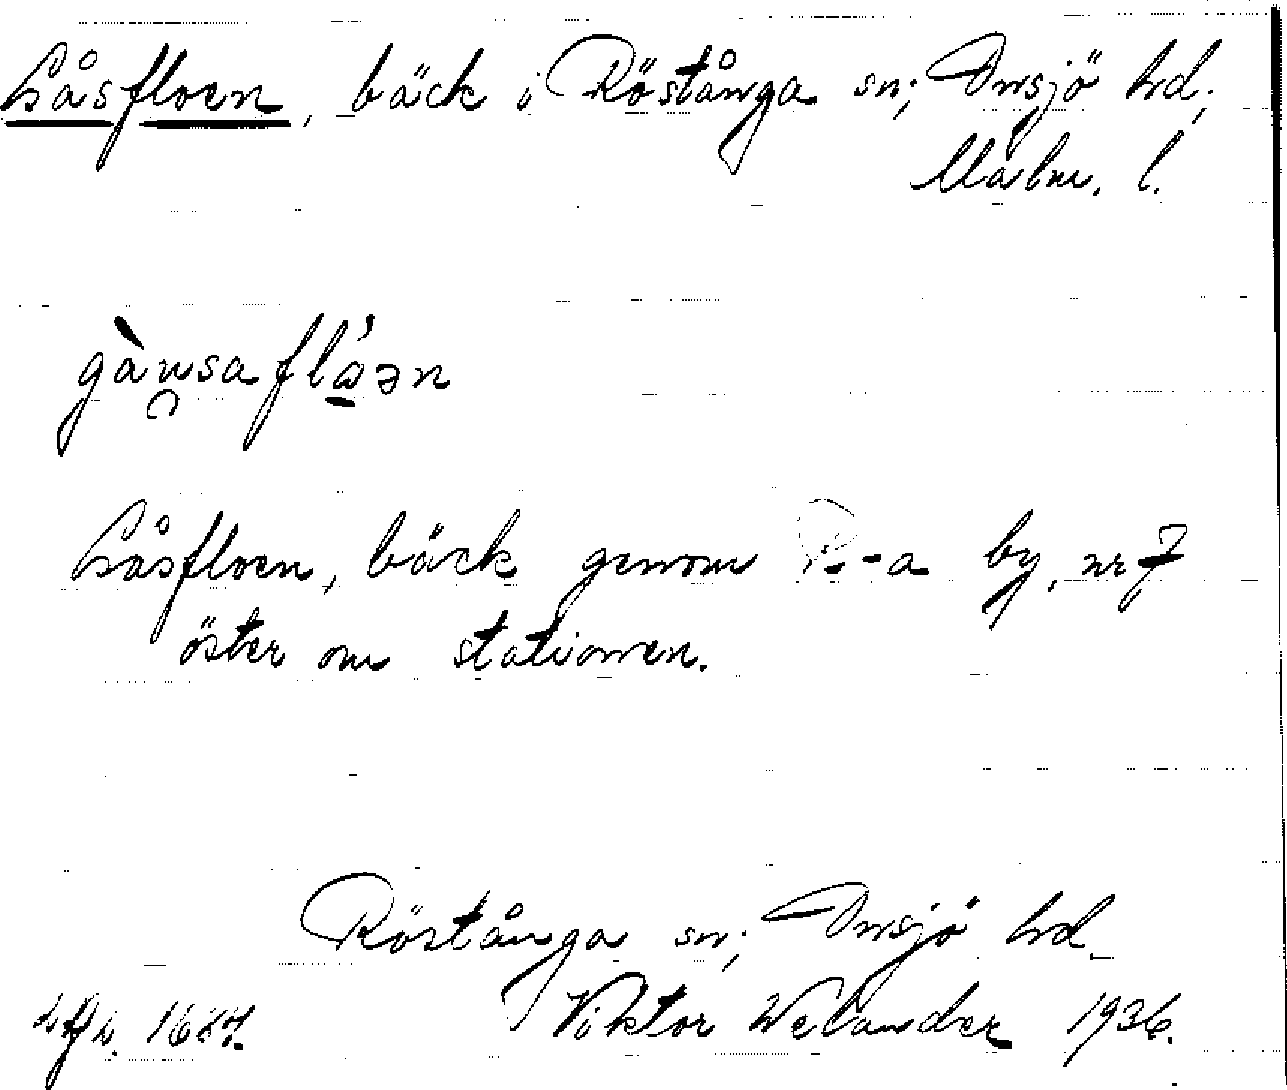 Gåsfloen, bäck i Röstånga sn; Onsjö hd;
Malm. l.
gànsaflóən
Gåsfloen, bäck genom R-a by, nr 7
öster om stationen.
Röstånga sn; Onsjö hd.
Viktor Welander 1936.